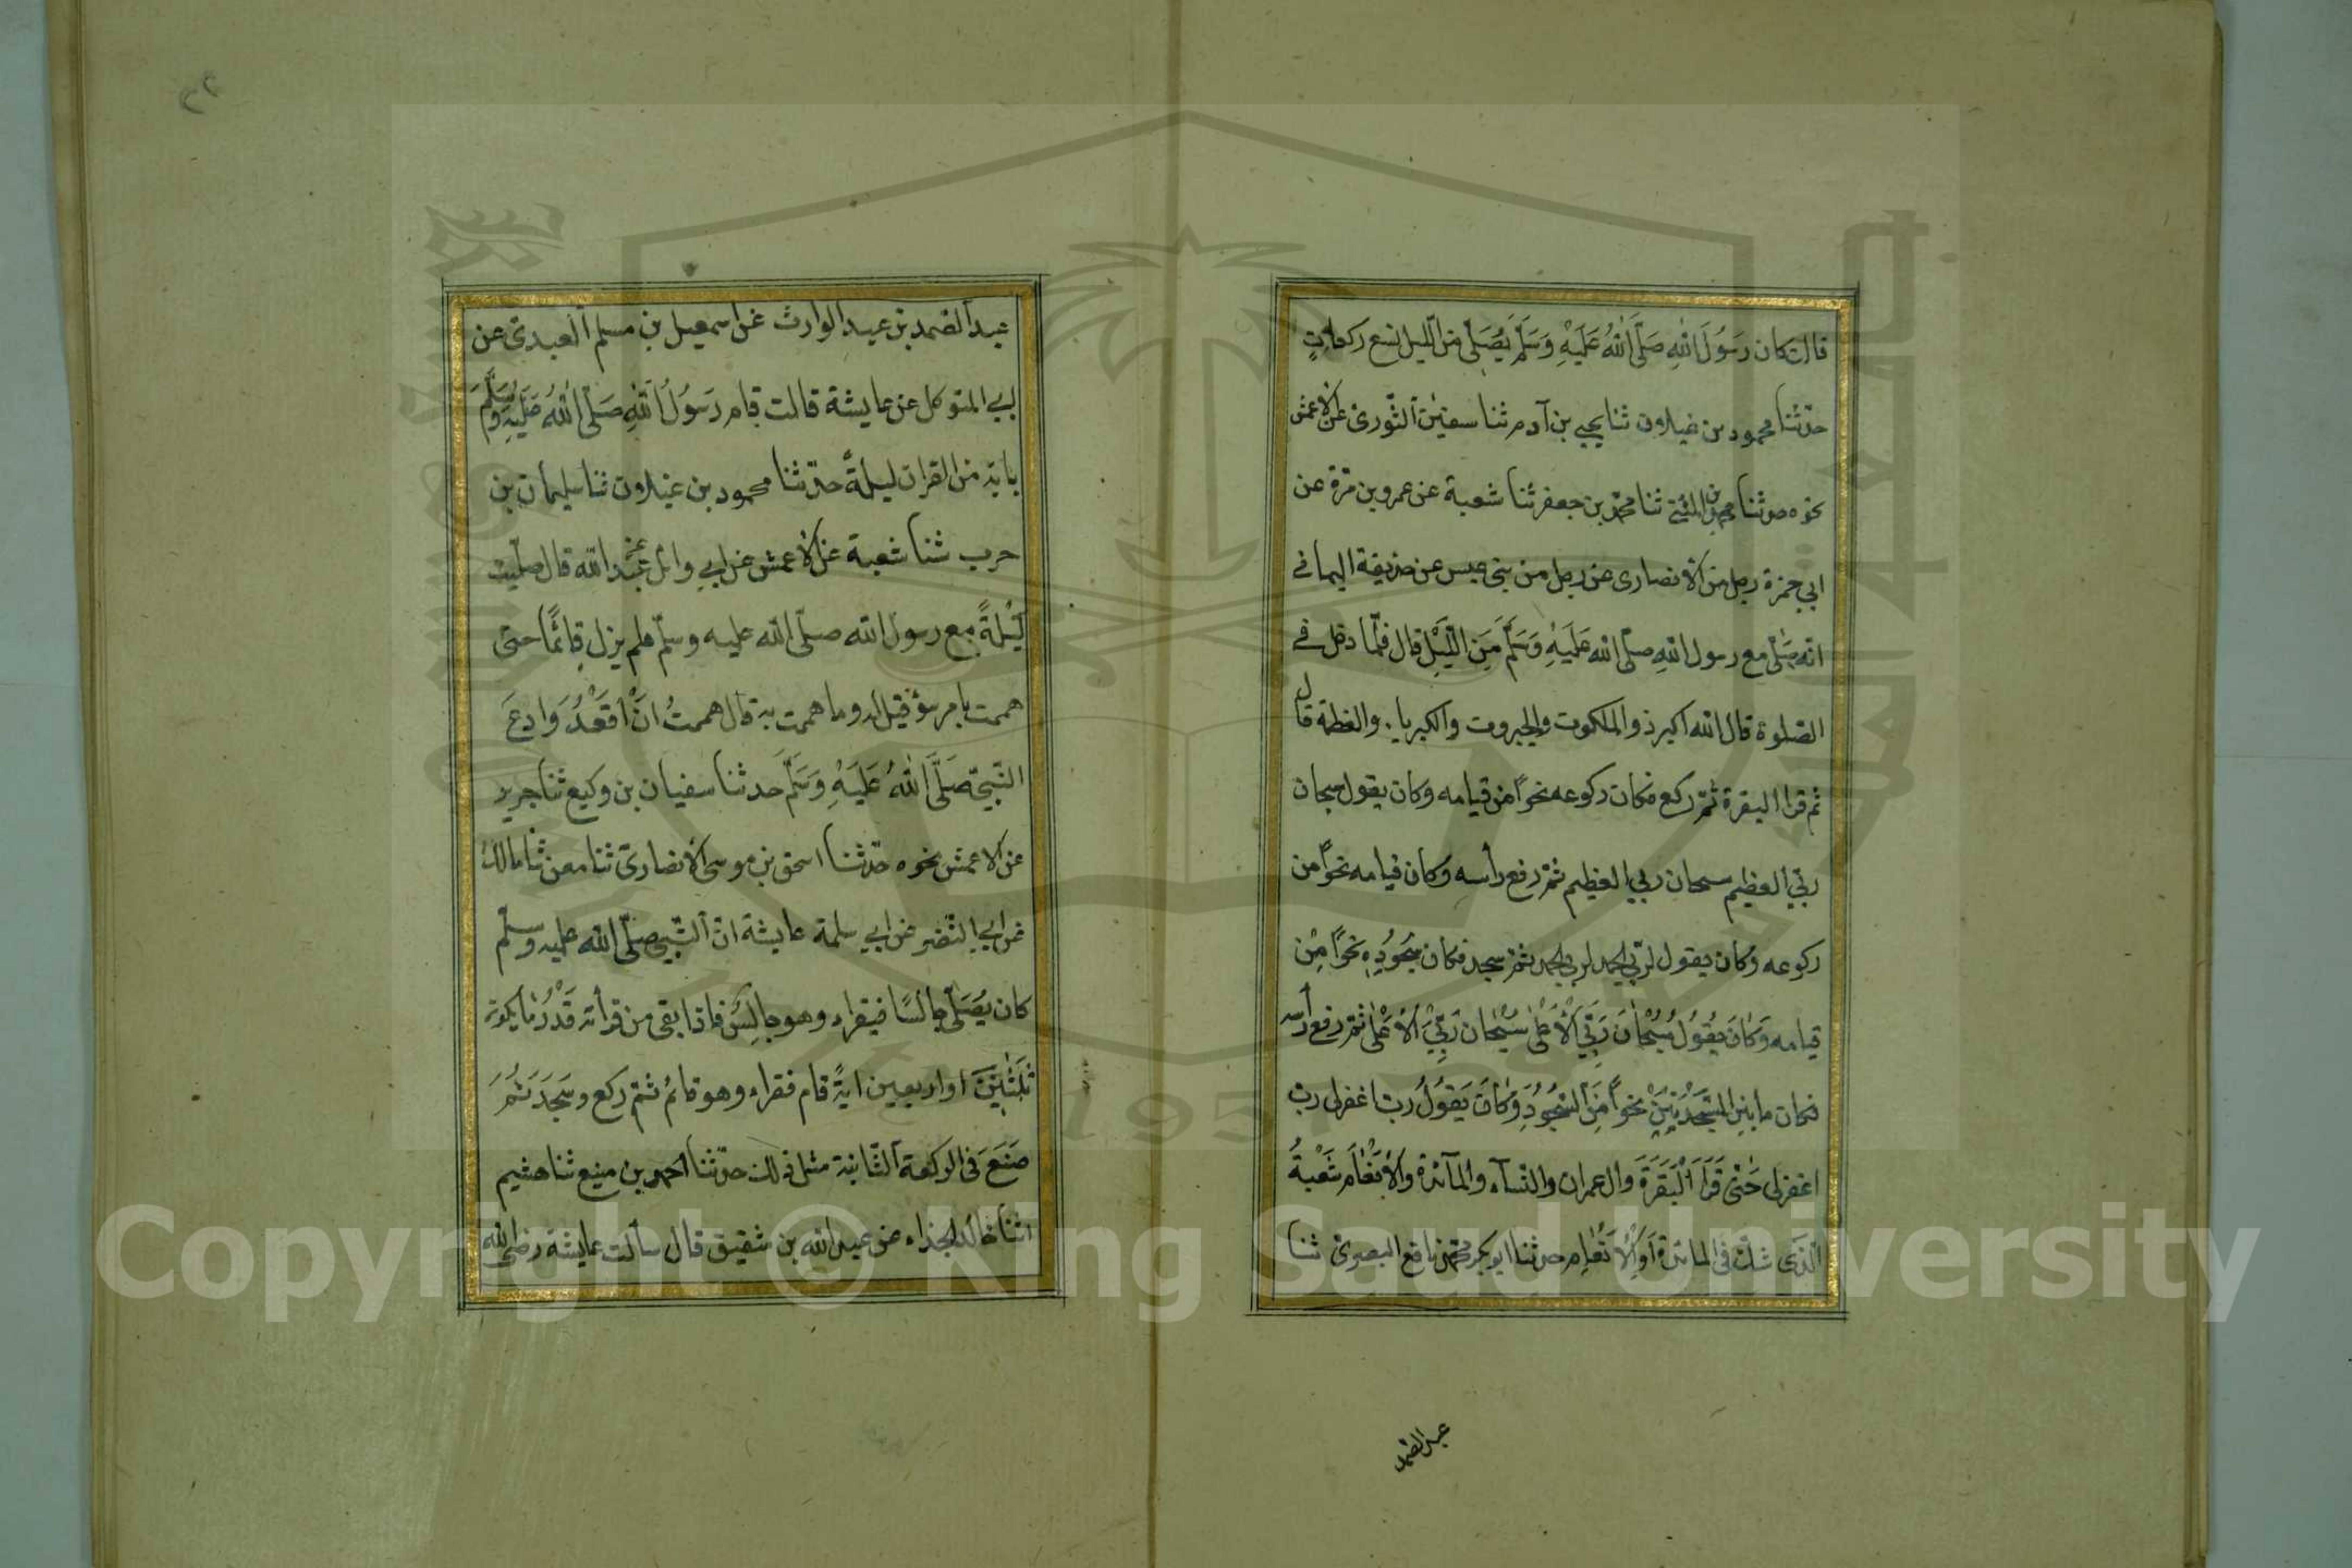 قالت كان رَسُولَ اللّٰهِ صَلَّى اللّٰهُ عَلَيْهِ وَسَلَّمَ يُصَلّى من اللّيل تسع ركعاتٍ
حدّثنا محمود بن غيلان ثنا يحيى بن آدم ثنا سفيٰن الثّورى عن الاعمش
نحوه حدثنا محمد بن المثنى ثنا محمد بن جعفر ثنا شعبة عن عمرو بن مرّة عن
ابي حمزة رجل من الأنصارى عن رجل من بنى عبس عن حذيفة اليمانى
انه صلّى مع رسول اللّهِ صلّى الله عَلَيْهِ وَسَلَّمَ مِنَ اللَّيْلِ قال فلمّا دخل فى
الصّلوة قال الله اكبر ذو الملكوت والجبروت والكبرياء والعظمة قال
ثم قرا البقرة ثمّ ركع فكان ركوعه نحواً من قيامه وكان يقول سبحان
ربّي العظيم سبحان ربي العظيم ثمّ رفع رأسه وكان قيامه نحواً من
ركوعه وكان يقول لربّي الحمد لربي الحمد ثمّ سجد فكان سُجُودُهِ نحواً مِنْ
قيامه وَكانَ يَقُولُ سُبْحٰانَ رَبّيَ الْأَعْلىٰ سُبْحٰان رَبّيَ الْأَعْلىٰ ثمّ رفع رأسه
فكان ما بين السَّجْدَتَيْنِ نحواً مِنَ السُّجُودِ وَكٰانَ يَقُولُ رب اغفرلى رب
اغفرلى حَتّىٰ قَرَاَ الْبَقَرَةَ وال عمران والنّسآء والمآئدة والأنعٰام شَعْبَةُ
الّذى شكّ فى المائدة أوِ الْأَنْعٰامِ حدثنا ابو بكر محمّد بن نافع البصرىّ ثنا
عبد الصّمد
عبد الصّمد بن عبد الوارث عن اسمعيل بن مسلم العبدىّ عن
ابي المتوكل عن عايشة قالت قام رَسُولُ اللّهِ صَلّى اللّٰهُ عَلَيْهِ وَسَلَّمَ
باية من القران ليلةً حدّثنا محمود بن غيلان ثنا سليمان بن
حرب ثنا شعبة عن الاعمش عن ابي وائل عن عبد الله قال صلّيت
لَيْلَةً مع رسول الله صلّى الله عليه وسلّم فلم يزل قائمًا حتى
هممت بامر سؤ قيل له وما هممت به قال هممتُ انْ اَقْعُدُ وَادعَ
النّبيّ صَلَّى اللّٰهُ عَلَيْهِ وَسَلَّمَ حدثنا سفيان بن وكيع ثنا جرير
عن الاعمش نحوه حدّثنا اسحق بن موسى الأنصارىّ ثنا معن ثنا مالك
عن ابي النّضر عن ابي سلمة عايشة انّ النّبيّ صلّى الله عليه وسلّم
كان يُصَلّى جالسًا فيقراء وهو جالِسٌ فاذا بقى من قرأته قَدْرُ ما يكون
ثَلٰثِيْنَ او اربعين ايةً قام فقراء وهو قائم ثمّ ركع وسَجَدَ ثمَّ
صَنَعَ فى الركعة الثّانية مثل ذلك حدّثنا احمد بن منيع ثنا هشيم
اثنا خالد الحذاء عن عبد الله بن شقيق قال سألت عايشة رضى الله
٢٢
Copyright © King Saud University
1957